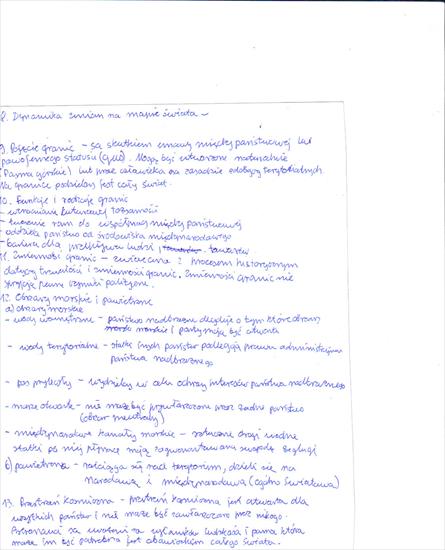 8. Dynamika zmian na mapie świata -
9. Pojęcie granic - są skutkiem umowy między państwowej lub
powojennego statusu (quo). Mogą być utworzone naturalnie
(Pasma górskie) lub przez człowieka na zasadzie zdobyczy terytorialnych.
Na granice podzielony jest cały świat.
10. Funkcje i rodzaje granic
- wzmacniania kulturowej tożsamości
- tworzenie ram do współpracy między państwowej
- oddziela państwo od środowiska międzynarodowego
- bariera dla przepływu ludzi, towarów
11. Zmienności granic - związana z procesem historycznym
dotyczy trwałości i zmienności granic. Zmienności granic nie
sprzyjają pewne czynniki polityczne.
12. Obszary morskie i powietrzne
a) obszary morskie
- wody wewnętrzne - państwo nadbrzeżne decyduje o tym które obszary
morskie i porty mają być otwarte
- wody terytorialne - statki innych państw podlegają prawu administracyjnemu
państwa nadbrzeżnego
- pas przyległy - wydzielony w celu ochrony interesów państwa nadbrzeżnego
- morze otwarte - nie może być przywłaszczone przez żadne państwo
(obszar neutralny)
- międzynarodowe kanały morskie - sztuczne drogi wodne
statki po niej płynące mają zagwarantowaną swobodę żeglugi
b) powietrzna - rozciąga się nad terytorium, dzieli się na
Narodową i międzynarodową (ogólno światową)
13. Przestrzeń kosmiczna - przestrzeń kosmiczna jest otwarta dla
wszystkich państw i nie może być zawłaszczona przez nikogo.
Astronauci są uważani za wysłanników ludzkości i pomoc która
może im być potrzebna jest obowiązkiem całego świata.